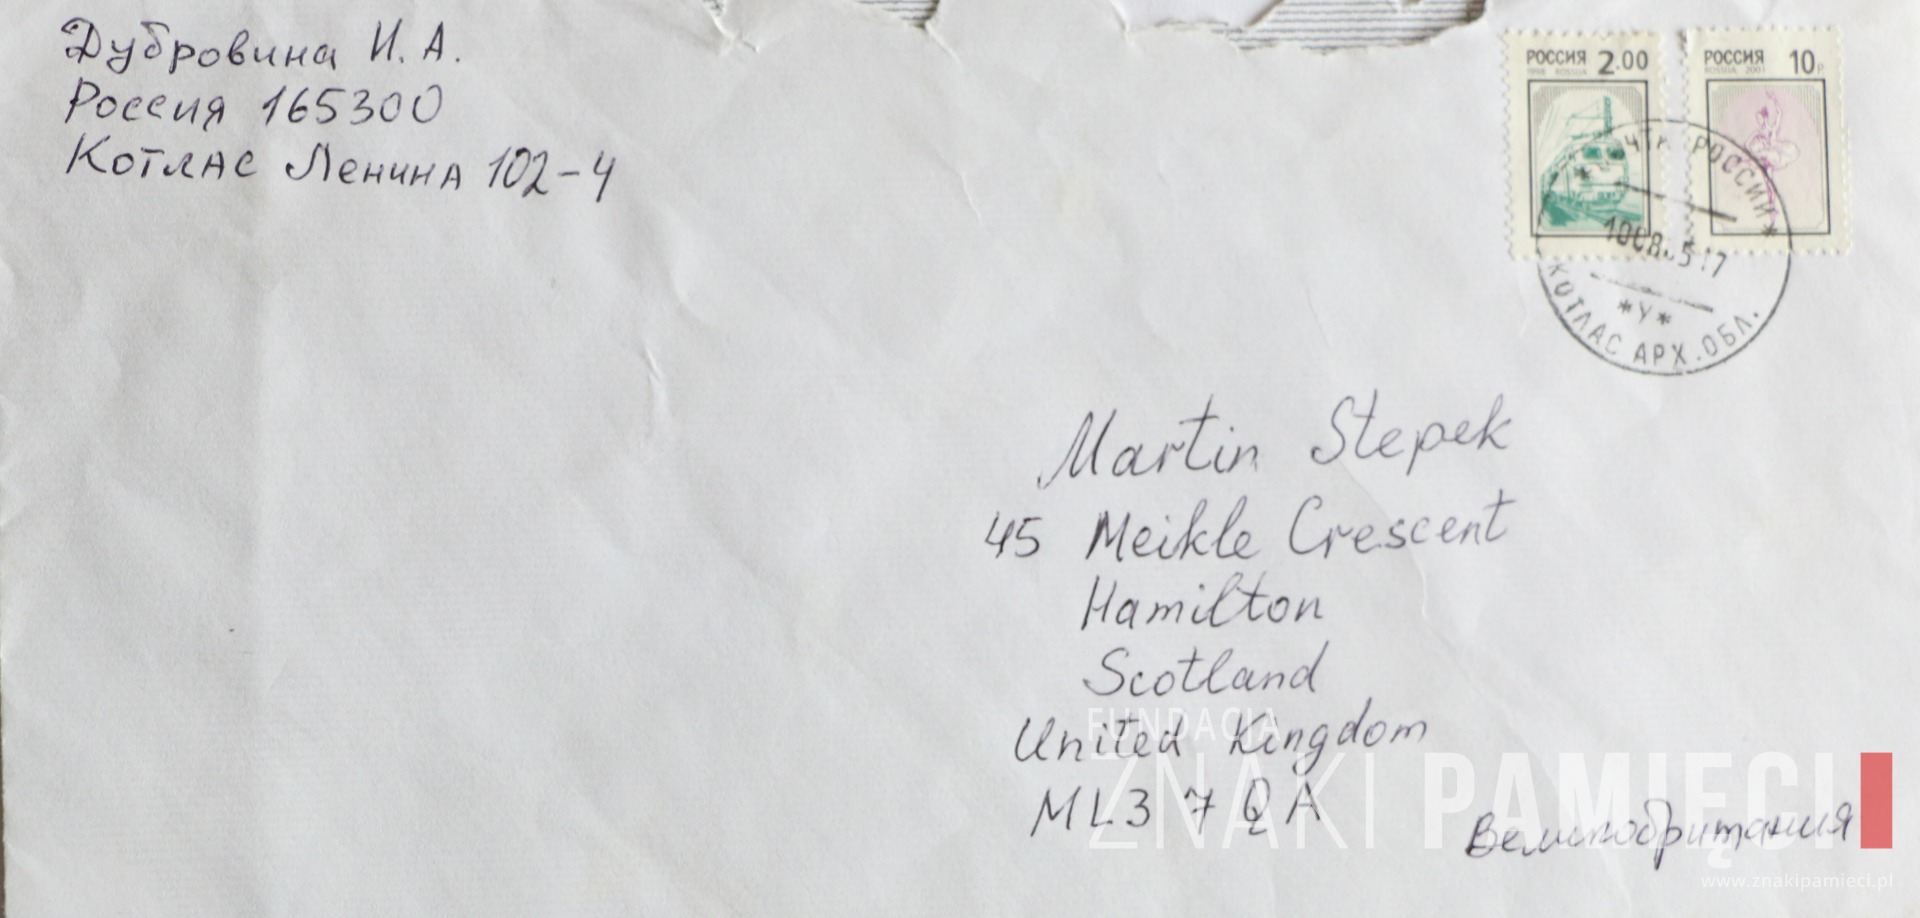 Дубровина И. А.
Россия 165300
Котлас Ленина 102-4
РОССИЯ 2.00
1998 ROSSIJA
РОССИЯ 10р.
ROSSIJA 2001
ПОЧТА РОССИИ
* *
*У*
КОТЛАС АРХ.ОБЛ.
Martin Stepek
45 Meikle Crescent
Hamilton
Scotland
United Kingdom
ML3 7QA
Великобритания
FUNDACJA
ZNAKI PAMIĘCI
www.znakipamieci.pl